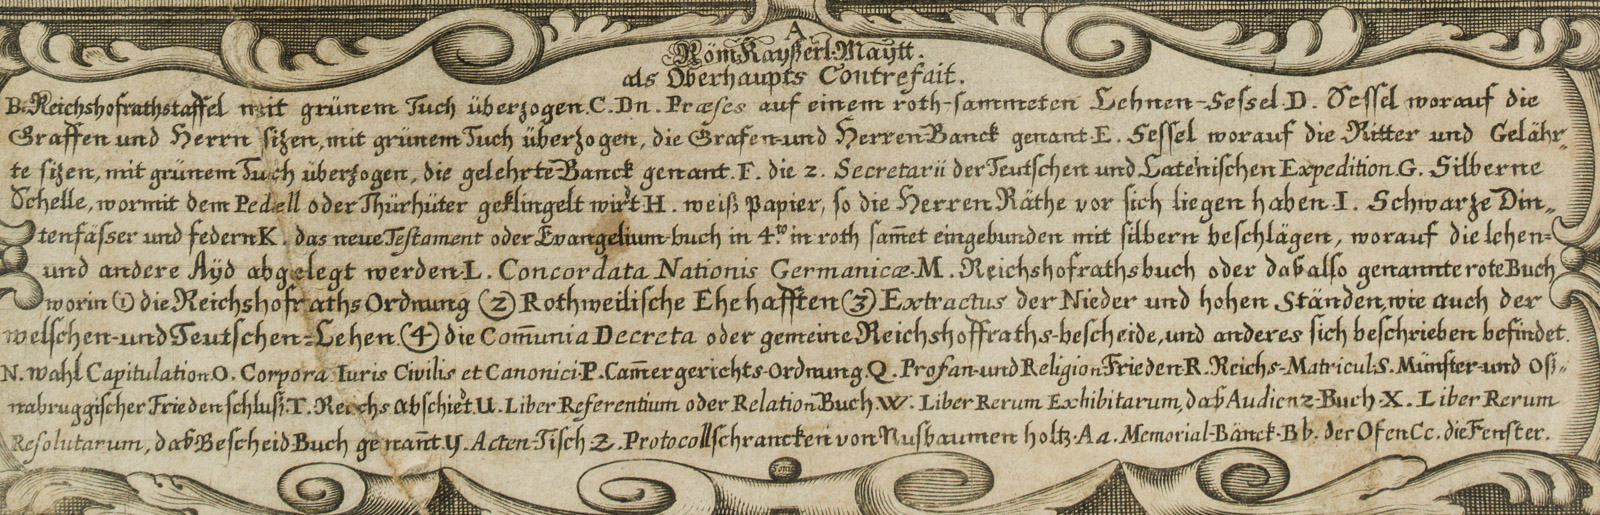 A
Röm Kayßerl. Maytt.
als Oberhaupts Contrefait.
B. Reichshofrathstaffel mit grünem Tuch überzogen. C. Dn. Præses auf einem roth-sammeten Lehnen-Sessel. D. Sessel worauf die
Graffen und Herrn sizen, mit grünem Tuch überzogen, die Grafen-und Herren Banck genant. E. Sessel worauf die Ritter und Gelähr„
te sizen, mit grünem Tuch überzogen, die gelehrte Banck genant. F. die 2. Secretarii der Teutschen und Lateinischen Expedition. G. Silberne
Schelle, wormit dem Pedell oder Thürhüter geklingelt wird. H. weiß Papier, so die Herren Räthe vor sich liegen haben. I. Schwarze Din„
tenfässer und federn K. das neue Testament oder Evangelium-buch in 4.to in roth sam̄et eingebunden mit silbern beschlägen, worauf die lehen-
und andere Äyd abgelegt werden. L. Concordata Nationis Germanicæ. M. Reichshofrathsbuch oder daß also genannte rote Buch
worin (1) die Reichshofraths Ordnung (2) Rothweilische Ehehafften (3) Extractus der Nieder und hohen Ständen, wie auch der
welschen-und Teutschen-Lehen. (4) die Com̄unia Decreta oder gemeine Reichshoffraths-bescheide, und anderes sich beschrieben befindet.
N. wahl Capitulation. O. Corpora Iuris Civilis et Canonici. P. Cam̄ergerichts-Ordnung. Q. Profan-und Religion Frieden. R. Reichs-Matricul. S. Münster-und Oß„
nabruggischer Friedenschluß. T. Reichs abschied. U. Liber Referentium oder Relation Buch. W. Liber Rerum Exhibitarum, daß Audienz-Buch. X. Liber Rerum
Resolutarum, daß Bescheid Buch genan̄t. Y. Acten-Tisch. Z. Protocollschrancken von Nusbaumen holtz. Aa. Memorial-Bänck. Bb. der Ofen Cc. die Fenster.